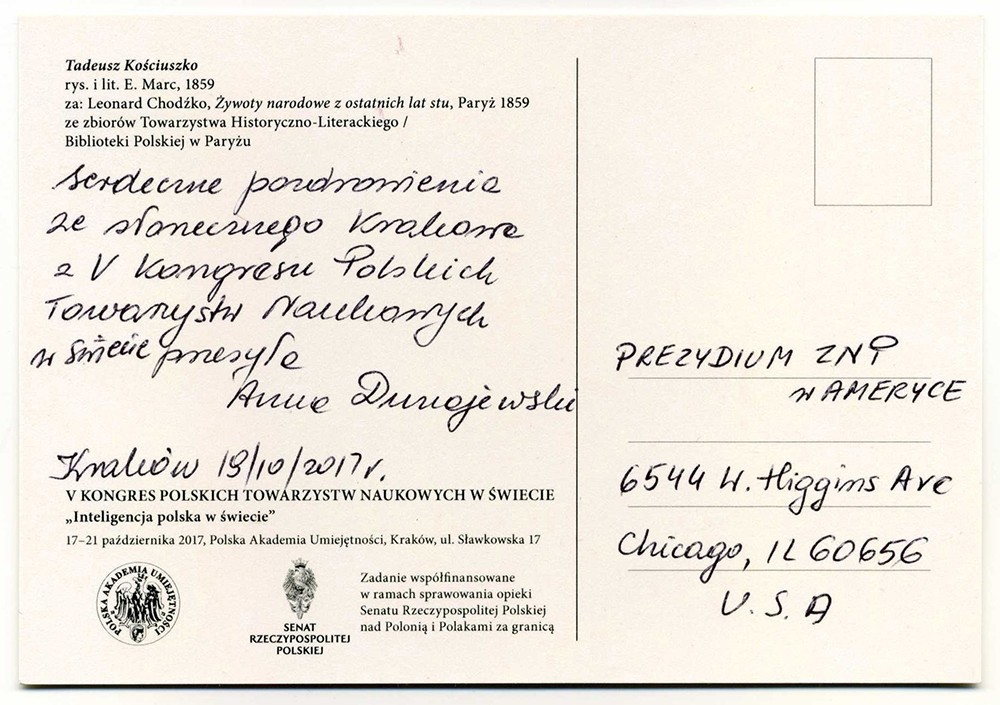 Tadeusz Kościuszko
rys. i lit. E. Marc, 1859
za: Leonard Chodźko, Żywoty narodowe z ostatnich lat stu, Paryż 1859
ze zbiorów Towarzystwa Historyczno-Literackiego /
Biblioteki Polskiej w Paryżu
Serdeczne pozdrowienia
ze słonecznego Krakowa
z V Kongresu Polskich
Towarzystw Naukowych
w świecie przesyła
Anna Dunajewski
Kraków 19/10/2017r.
V KONGRES POLSKICH TOWARZYSTW NAUKOWYCH W ŚWIECIE
„Inteligencja polska w świecie”
17–21 października 2017, Polska Akademia Umiejętności, Kraków, ul. Sławkowska 17
POLSKA AKADEMIA UMIEJĘTNOŚCI
SENAT
RZECZYPOSPOLITEJ
POLSKIEJ
Zadanie współfinansowane
w ramach sprawowania opieki
Senatu Rzeczypospolitej Polskiej
nad Polonią i Polakami za granicą
PREZYDIUM ZNP
w AMERYCE
6544 W. Higgins Ave
Chicago, IL 60656
U.S.A